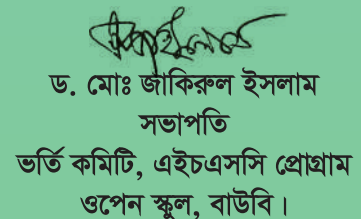 ড. মোঃ জাকিরুল ইসলাম
সভাপতি
ভর্তি কমিটি, এইচএসসি প্রোগ্রাম
ওপেন স্কুল, বাউবি।